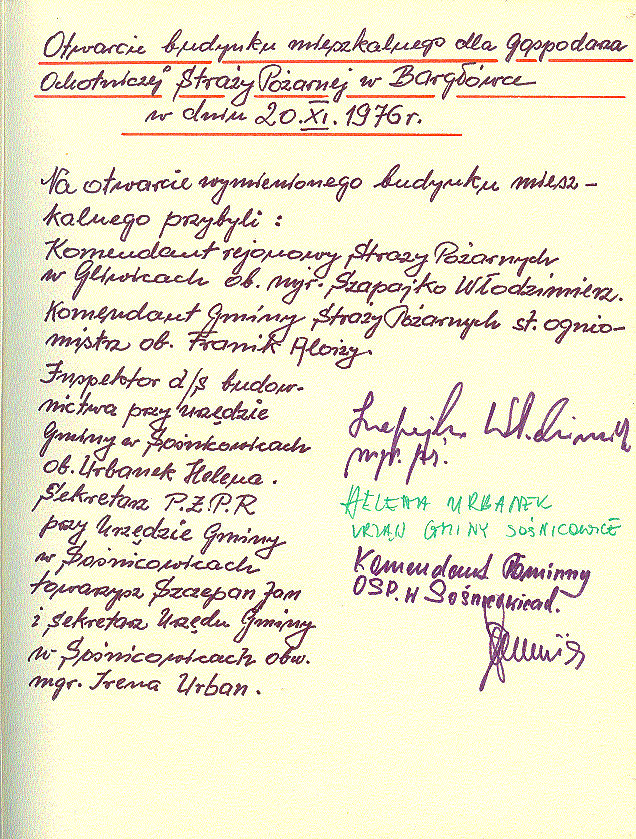 Otwarcie budynku mieszkalnego dla gospodarza
Ochotniczej Straży Pożarnej w Bargłówce
w dniu 20.XI.1976 r.
Na otwarcie wymienionego budynku miesz-
kalnego przybyli :
Komendant rejonowy Straży Pożarnych
w Gliwicach ob. mgr. Szapajko Włodzimierz.
Komendant Gminy Straży Pożarnych st. ognio-
mistrz ob. Franik Alojzy.
Inspektor d/s budow-
nictwa przy urzędzie
Gminy w Sośnicowicach
ob. Urbanek Helena.
Sekretarz P.Z.P.R
przy Urzędzie Gminy
w Sośnicowicach
towarzysz Szczepan Jan
i sekretarz Urzędu Gminy
w Sośnicowicach obw.
mgr. Irena Urban.
Szapajko Włodzimierz
mgr.
HELENA URBANEK
URZĄD GMINY SOŚNICOWICE
Komendant Gminny
OSP. W Sośnicowicad.